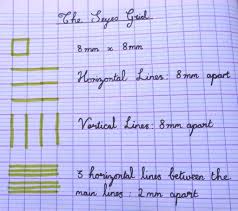 The Seyes Grid
8mm x 8mm
Horizontal Lines: 8mm apart
Vertical Lines: 8mm apart
3 horizontal lines between the
main lines: 2mm apart